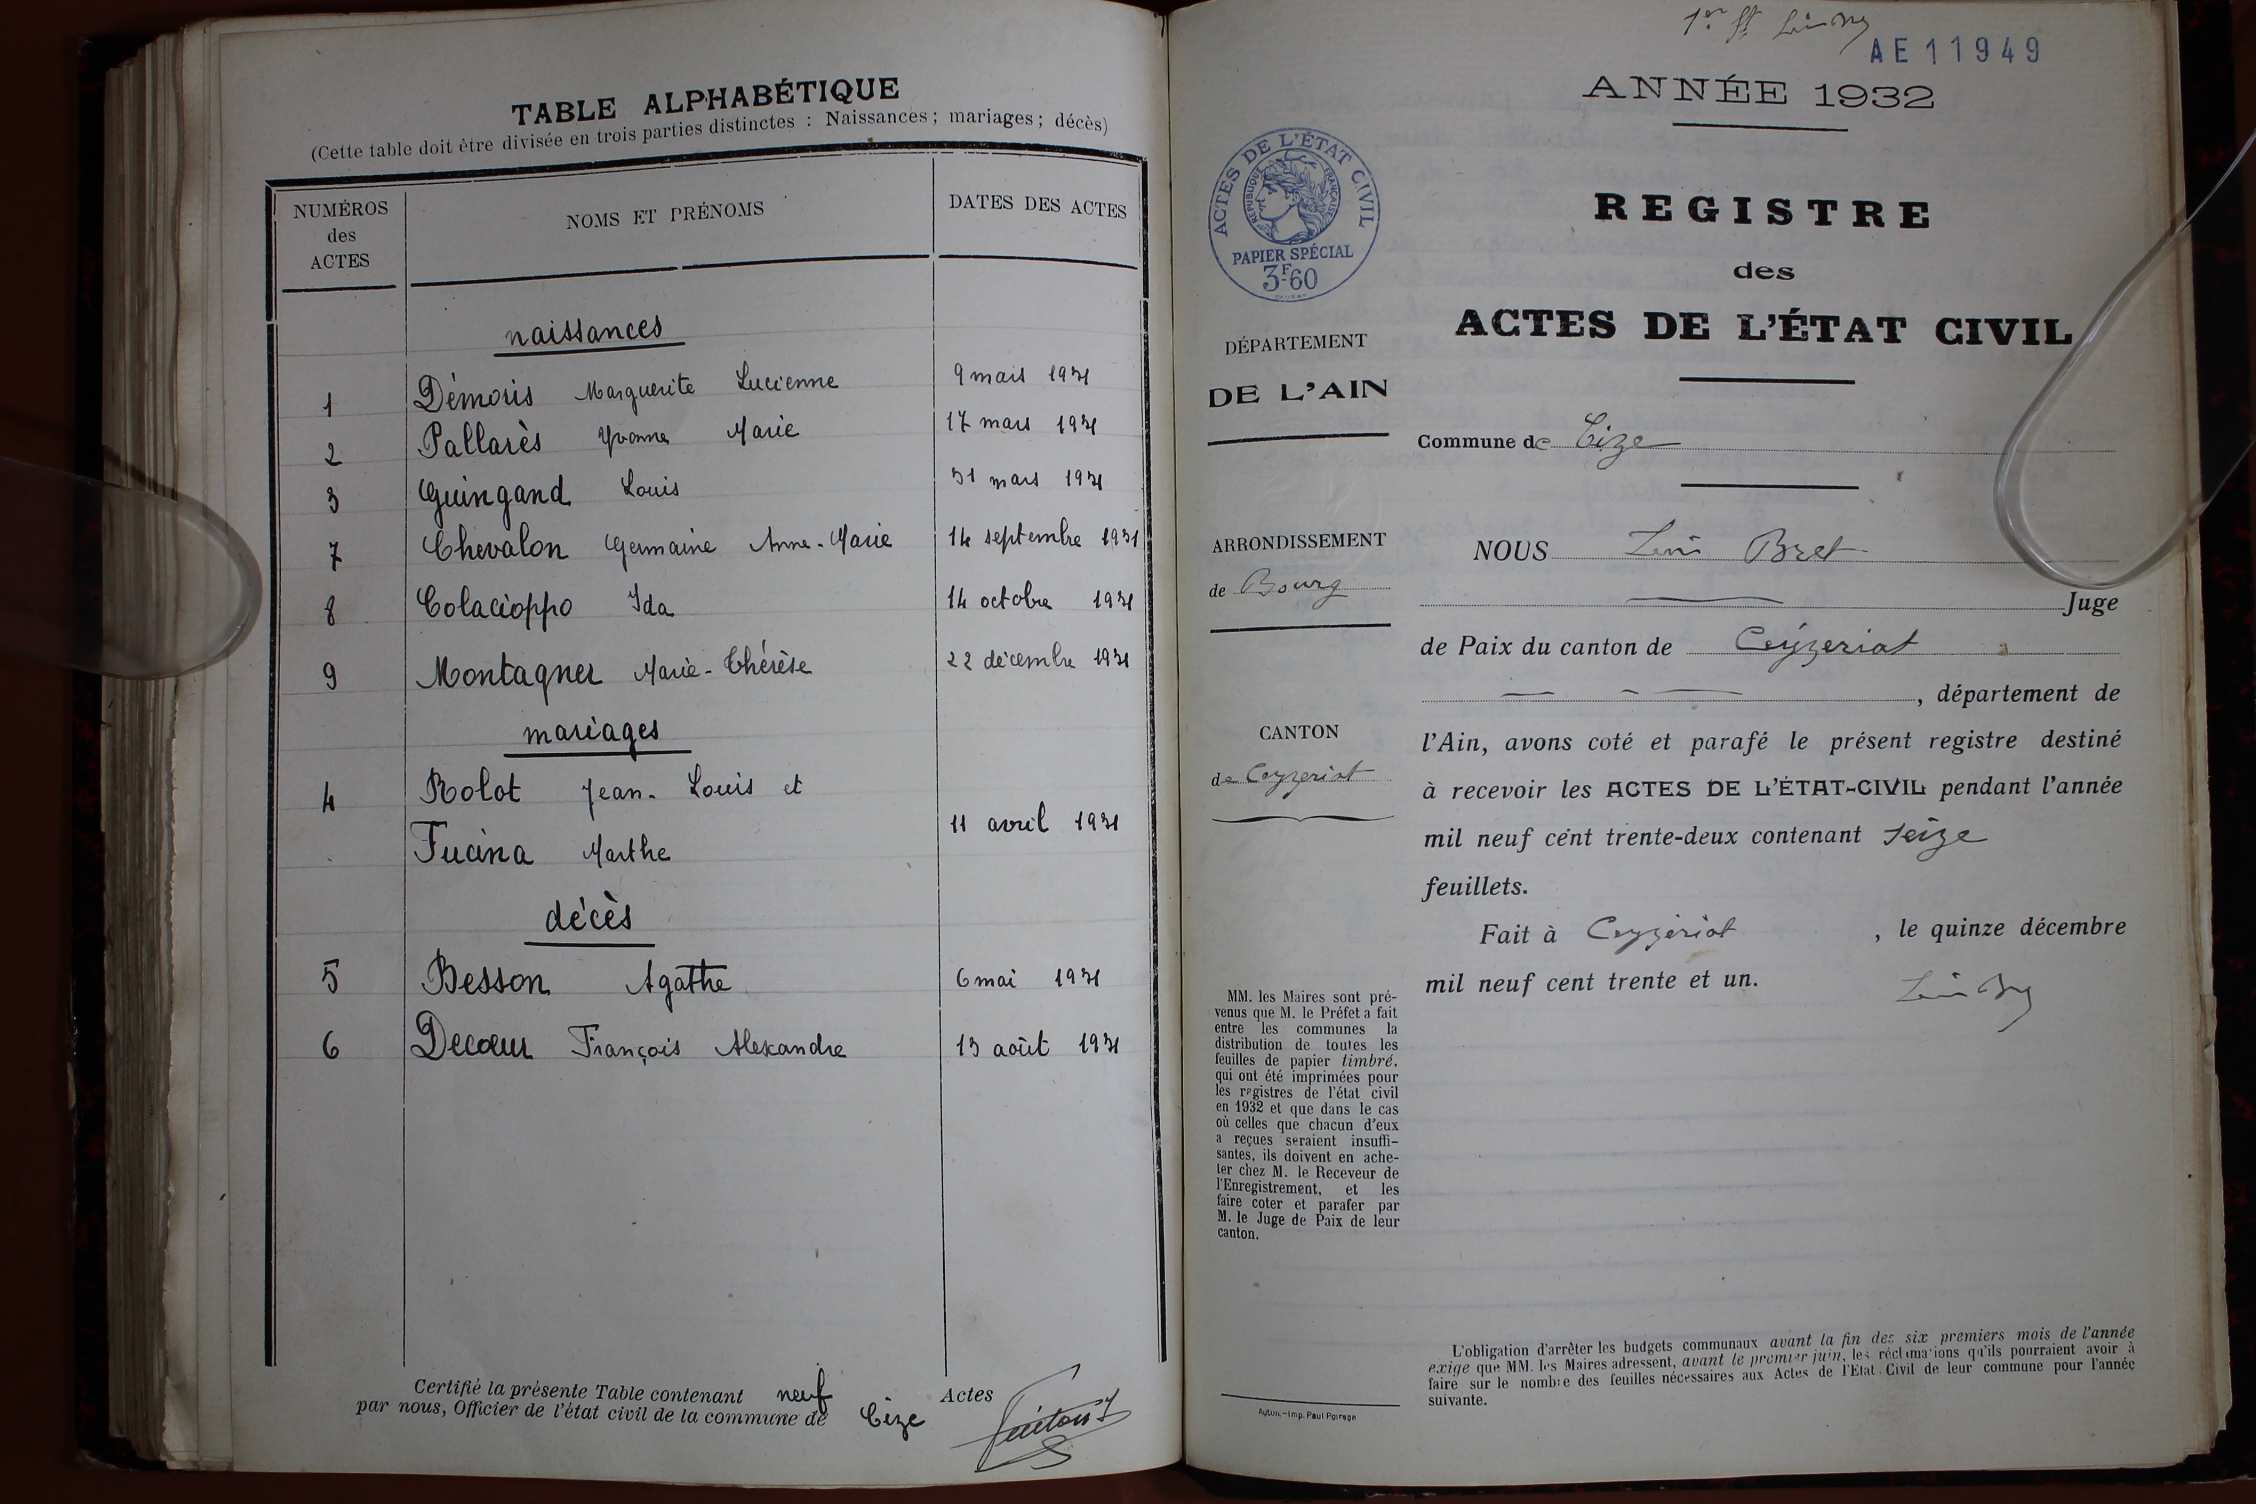 TABLE ALPHABÉTIQUE
(Cette table doit être divisée en trois parties distinctes : Naissances ; mariages ; décès)
NUMÉROS
des
ACTES
NOMS ET PRÉNOMS
DATES DES ACTES
naissances
1 Démoris Marguerite Lucienne 9 mars 1931
2 Pallarès Yvonne Marie 17 mars 1931
3 Guingand Louis 31 mars 1931
7 Chevalon Germaine Anne-Marie 14 septembre 1931
8 Colacioppo Ida 14 octobre 1931
9 Montagner Marie-Thérèse 22 décembre 1931
mariages
4 Rolot Jean-Louis et
11 avril 1931
Fucina Marthe
décès
5 Besson Agathe 6 mai 1931
6 Decœur François Alexandre 13 août 1931
Certifié la présente Table contenant neuf Actes
par nous, Officier de l'état civil de la commune de Cize
1er ft
AE11949
ANNÉE 1932
ACTES DE L'ÉTAT CIVIL
RÉPUBLIQUE FRANÇAISE
PAPIER SPÉCIAL
3F60
REGISTRE
des
ACTES DE L'ÉTAT CIVIL
DÉPARTEMENT
DE L'AIN
Commune de Cize
ARRONDISSEMENT
de Bourg
CANTON
de Ceyzeriat
NOUS Louis Bret
Juge
de Paix du canton de Ceyzeriat
, département de
l'Ain, avons coté et parafé le présent registre destiné
à recevoir les ACTES DE L'ÉTAT-CIVIL pendant l'année
mil neuf cent trente-deux contenant seize
feuillets.
Fait à Ceyzeriat , le quinze décembre
mil neuf cent trente et un.
MM. les Maires sont pré-
venus que M. le Préfet a fait
entre les communes la
distribution de toutes les
feuilles de papier timbré,
qui ont été imprimées pour
les registres de l'état civil
en 1932 et que dans le cas
où celles que chacun d'eux
a reçues seraient insuffi-
santes, ils doivent en ache-
ter chez M. le Receveur de
l'Enregistrement, et les
faire coter et parafer par
M. le Juge de Paix de leur
canton.
L'obligation d'arrêter les budgets communaux avant la fin des six premiers mois de l'année
exige que MM. les Maires adressent, avant le premier juin, les réclamations qu'ils pourraient avoir à
faire sur le nombre des feuilles nécessaires aux Actes de l'Etat Civil de leur commune pour l'année
suivante.